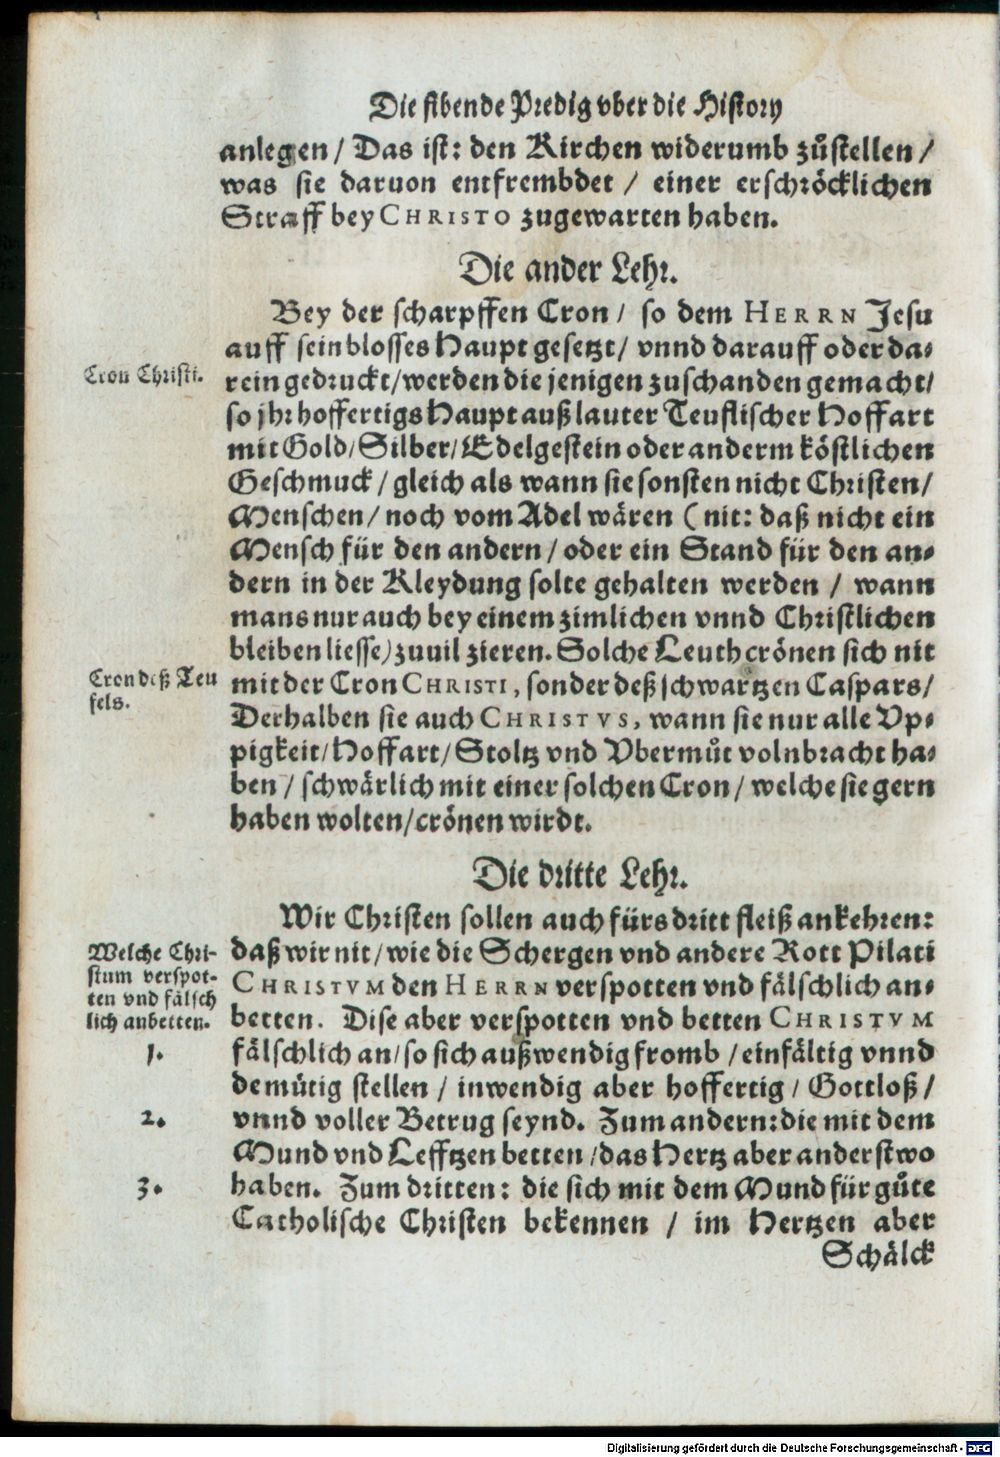 Die sibende Predig vber die History
anlegen / Das ist: den Kirchen widerumb zůstellen /
was sie daruon entfrembdet / einer erschröcklichen
Straff bey CHRISTO zugewarten haben.
Die ander Lehr.
Bey der scharpffen Cron / so dem HERRN Jesu
auff sein blosses Haupt gesetzt / vnnd darauff oder da-
Cron Christi.
rein gedruckt / werden die jenigen zuschanden gemacht /
so jhr hoffertigs Haupt auß lauter Teuflischer Hoffart
mit Gold / Silber / Edelgestein oder anderm köstlichen
Geschmuck / gleich als wann sie sonsten nicht Christen /
Menschen / noch vom Adel wären (nit: daß nicht ein
Mensch für den andern / oder ein Stand für den an-
dern in der Kleydung solte gehalten werden / wann
mans nur auch bey einem zimlichen vnnd Christlichen
bleiben liesse) zuuil zieren. Solche Leuth crönen sich nit
Cron deß Teu
fels.
mit der Cron CHRISTI, sonder deß schwartzen Caspars /
Derhalben sie auch CHRISTVS, wann sie nur alle Vp-
pigkeit / Hoffart / Stoltz vnd Vbermůt volnbracht ha-
ben / schwärlich mit einer solchen Cron / welche sie gern
haben wolten / crönen wirdt.
Die dritte Lehr.
Wir Christen sollen auch fürs dritt fleiß ankehren:
Welche Chri-
stum verspot-
ten vnd fälsch
lich anbetten.
daß wir nit / wie die Schergen vnd andere Rott Pilati
CHRISTVM den HERRN verspotten vnd fälschlich an-
betten. Dise aber verspotten vnd betten CHRISTVM
1.
fälschlich an / so sich außwendig fromb / einfältig vnnd
demütig stellen / inwendig aber hoffertig / Gottloß /
2.
vnnd voller Betrug seynd. Zum andern: die mit dem
Mund vnd Lefftzen betten / das Hertz aber anderstwo
3.
haben. Zum dritten: die sich mit dem Mund für gůte
Catholische Christen bekennen / im Hertzen aber
Schälck
Digitalisierung gefördert durch die Deutsche Forschungsgemeinschaft - DFG